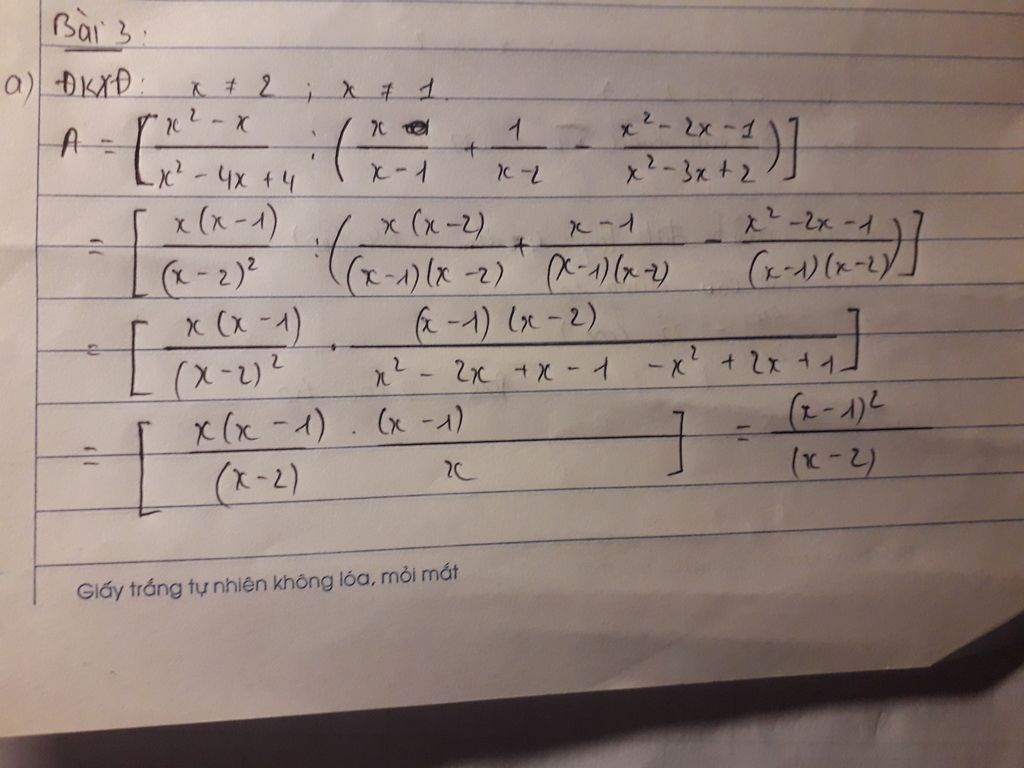 Bài 3:
a) ĐKXĐ: x ≠ 2 ; x ≠ 1.
A = [ (x² - x)/(x² - 4x + 4) : ( x/(x - 1) + 1/(x - 2) - (x² - 2x - 1)/(x² - 3x + 2) ) ]
= [ x(x - 1)/(x - 2)² : ( x(x - 2)/((x - 1)(x - 2)) + (x - 1)/((x - 1)(x - 2)) - (x² - 2x - 1)/((x - 1)(x - 2)) ) ]
= [ x(x - 1)/(x - 2)² . (x - 1)(x - 2)/(x² - 2x + x - 1 - x² + 2x + 1) ]
= [ x(x - 1) . (x - 1)/((x - 2) x) ] = (x - 1)²/(x - 2)
Giấy trắng tự nhiên không lóa, mỏi mắt